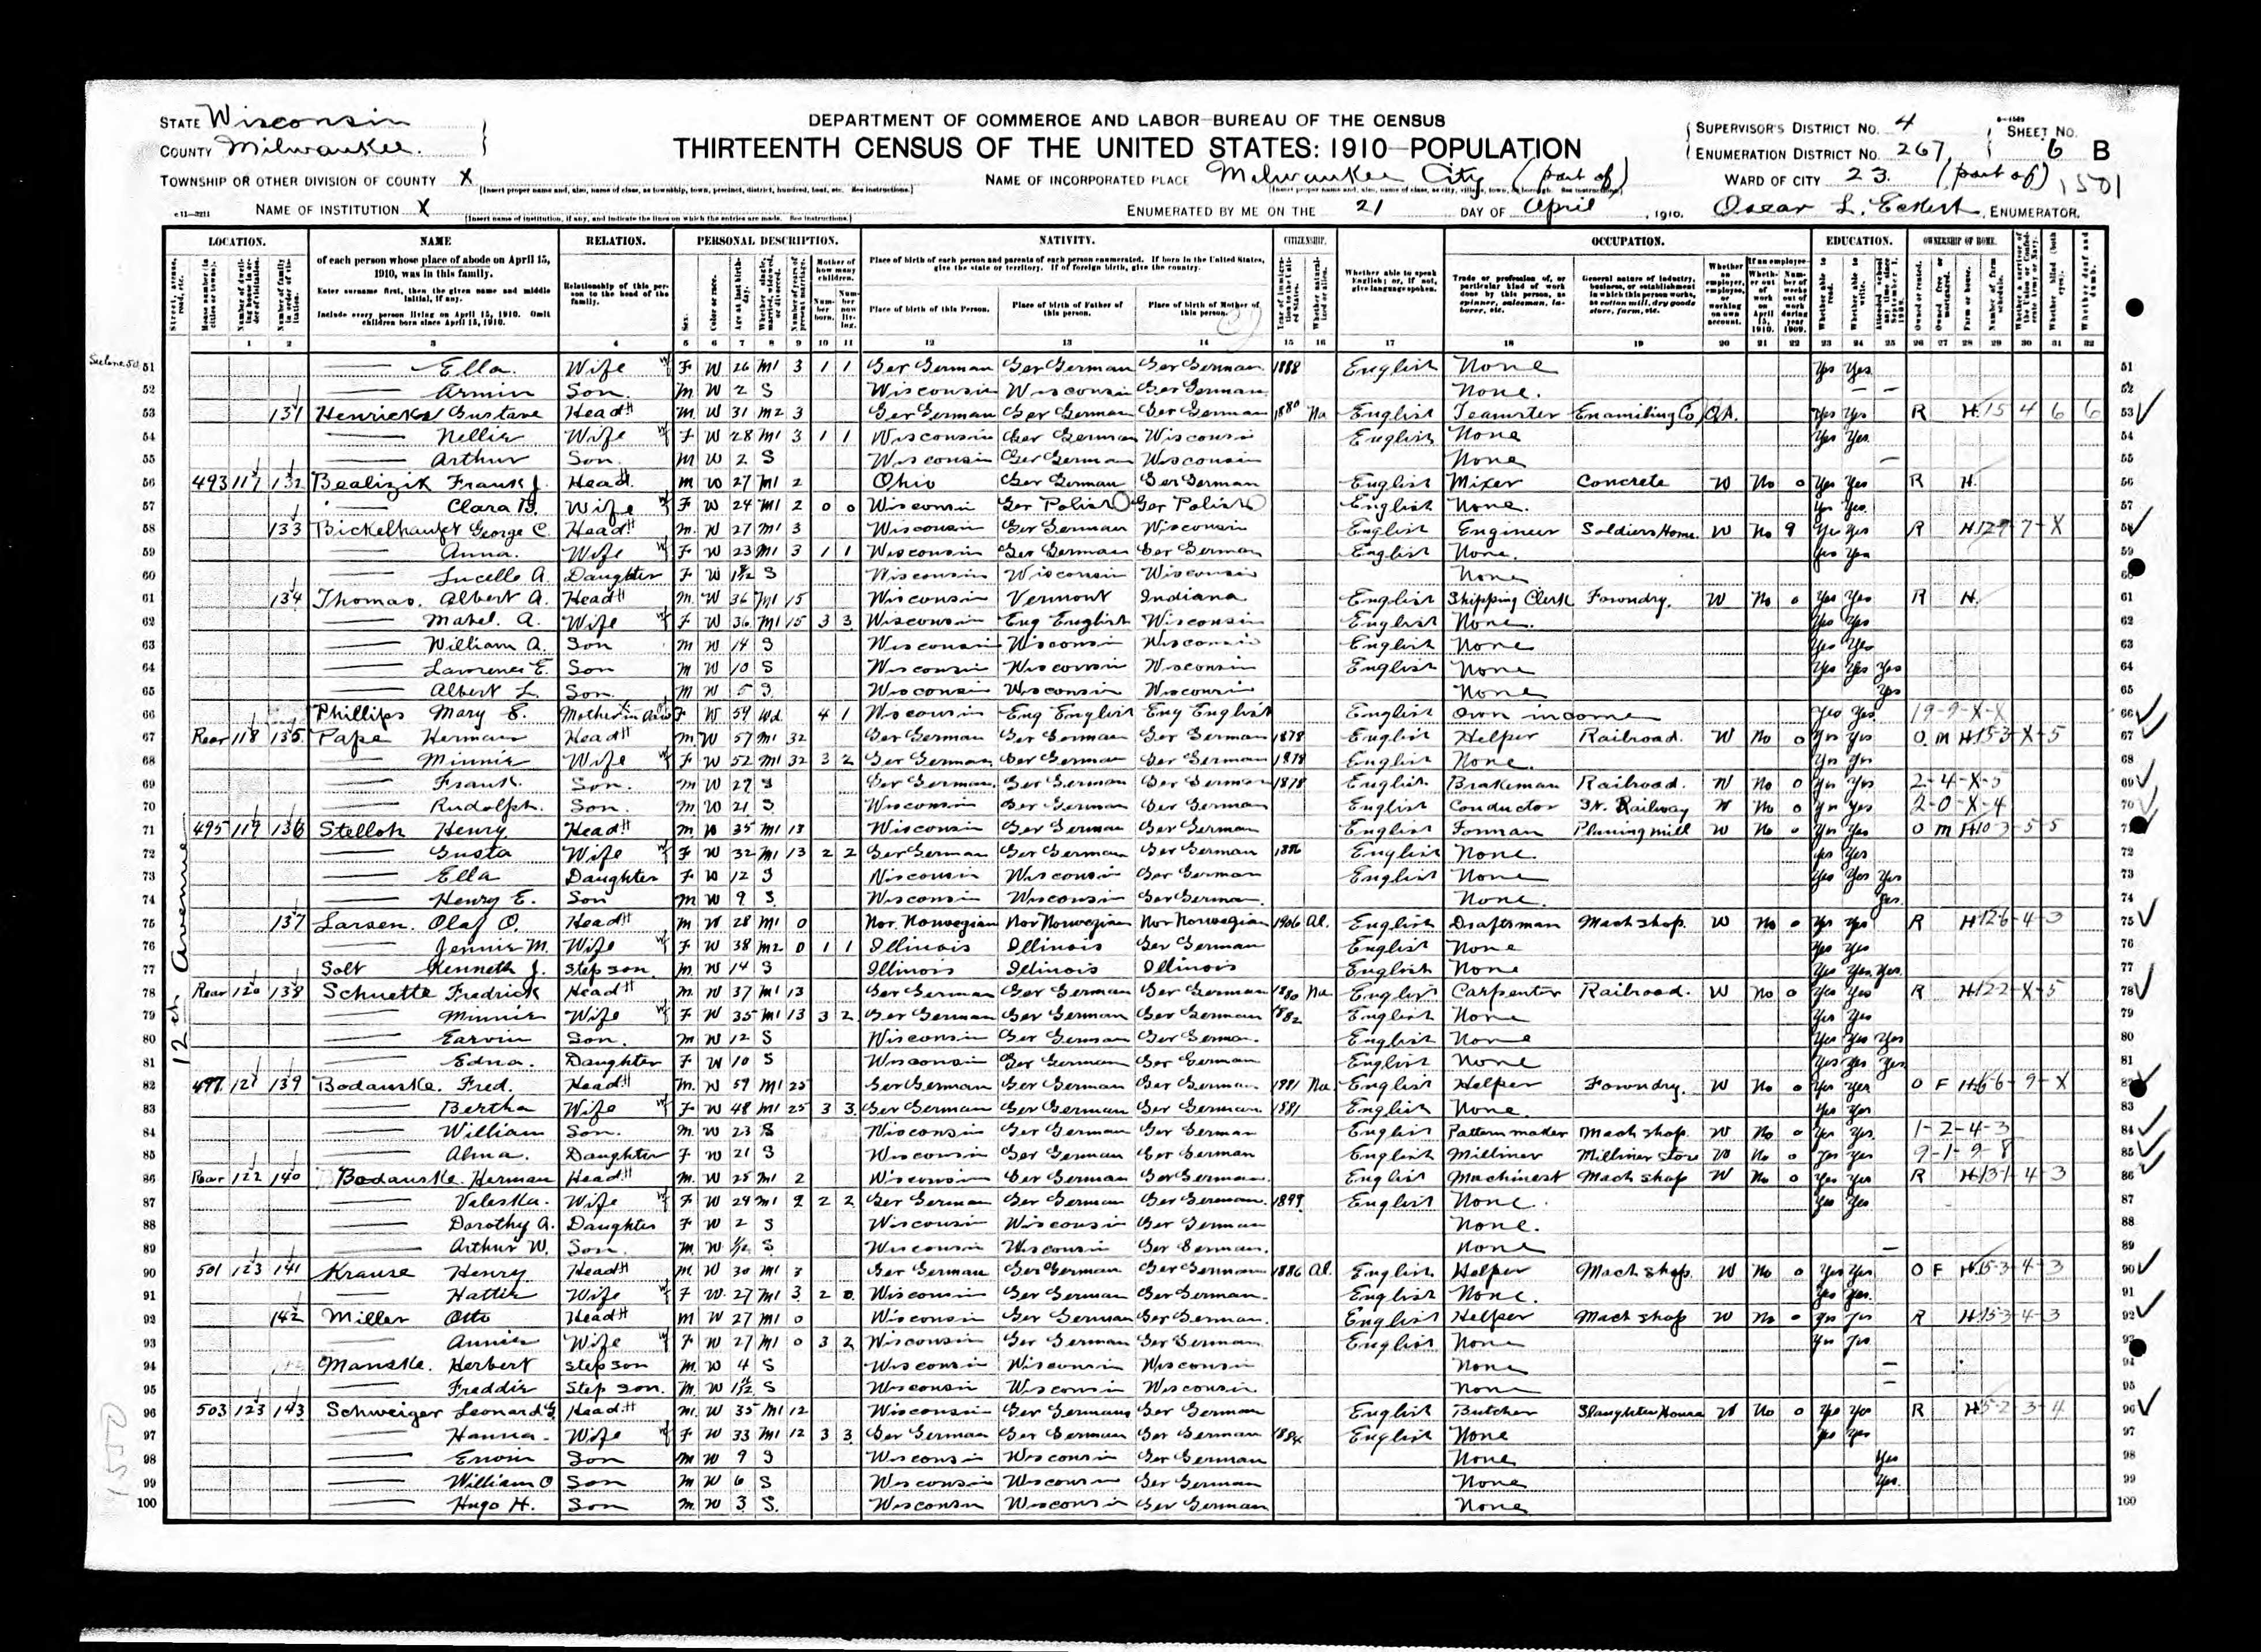 STATE Wisconsin
COUNTY Milwaukee.
DEPARTMENT OF COMMERCE AND LABOR—BUREAU OF THE CENSUS
THIRTEENTH CENSUS OF THE UNITED STATES: 1910—POPULATION
SUPERVISOR'S DISTRICT No. 4
ENUMERATION DISTRICT No. 267,
SHEET No. 6 B
TOWNSHIP OR OTHER DIVISION OF COUNTY X
NAME OF INCORPORATED PLACE Milwaukee City (part of)
WARD OF CITY 23. (part of) 1501
NAME OF INSTITUTION X
ENUMERATED BY ME ON THE 21 DAY OF April, 1910. Oscar L. Eckert, ENUMERATOR.
LOCATION. NAME RELATION. PERSONAL DESCRIPTION. NATIVITY. CITIZENSHIP. OCCUPATION. EDUCATION. OWNERSHIP OF HOME.
of each person whose place of abode on April 15, 1910, was in this family.
Enter surname first, then the given name and middle initial, if any.
Include every person living on April 15, 1910. Omit children born since April 15, 1910.
Relationship of this person to the head of the family.
Place of birth of each person and parents of each person enumerated. If born in the United States, give the state or territory. If of foreign birth, give the country.
Place of birth of this Person. Place of birth of Father of this person. Place of birth of Mother of this person.
Whether able to speak English; or, if not, give language spoken.
12th Avenue
51 Ella. Wife F W 26 M1 3 1 1 Ger German Ger German Ger German 1888 English None Yes Yes 51
52 Armin Son. M W 2 S Wisconsin Wisconsin Ger German None. 52
53 131 Henricks Gustave Head M W 31 M2 3 Ger German Ger German Ger German 1880 Na English Teamster Enamiling Co OA. Yes Yes R H 53
54 Nellie Wife F W 28 M1 3 1 1 Wisconsin Ger German Wisconsin English None Yes Yes 54
55 Arthur Son. M W 2 S Wisconsin Ger German Wisconsin None 55
56 493 117 132 Bealizik Frank J. Head. M W 27 M1 2 Ohio Ger German Ger German English Mixer Concrete W No 0 Yes Yes R H. 56
57 Clara B. Wife F W 24 M1 2 0 0 Wisconsin Ger Polish Ger Polish English None. Yes Yes 57
58 133 Bickelhaupt George C. Head M. W 27 M1 3 Wisconsin Ger German Wisconsin English Engineer Soldiers Home. W No 9 Yes Yes R H 58
59 Anna. Wife F W 23 M1 3 1 1 Wisconsin Ger German Ger German English None. Yes Yes 59
60 Lucelle A. Daughter F W S Wisconsin Wisconsin Wisconsin None 60
61 134 Thomas. Albert A. Head M. W 36 M1 15 Wisconsin Vermont Indiana English Shipping Clerk Fowndry. W No 0 Yes Yes R H. 61
62 Mabel. A. Wife F W 36 M1 15 3 3 Wisconsin Eng English Wisconsin English None. Yes Yes 62
63 William A. Son M W 14 S Wisconsin Wisconsin Wisconsin English None Yes Yes 63
64 Lawrence E. Son M W 10 S Wisconsin Wisconsin Wisconsin English None Yes Yes Yes 64
65 Albert L. Son. M W 5 S Wisconsin Wisconsin Wisconsin None Yes 65
66 Phillips Mary E. Mother in law F W 59 Wd. 4 1 Wisconsin Eng English Eng English English Own income Yes Yes 66
67 Rear 118 135 Pape Herman Head M. W 57 M1 32 Ger German Ger German Ger German 1878 English Helper Railroad. W No 0 Yes Yes O M H 67
68 Minnie Wife F W 52 M1 32 3 2 Ger German Ger German Ger German 1878 English None. Yes Yes 68
69 Frank. Son. M W 29 S Ger German Ger German Ger German 1878 English Brakeman Railroad. W No 0 Yes Yes 2-4-X-5 69
70 Rudolph. Son. M. W 21 S Wisconsin Ger German Ger German English Conductor St. Railway W No 0 Yes Yes 2-0-X-4 70
71 495 119 136 Stelloh Henry Head M. W 35 M1 13 Wisconsin Ger German Ger German English Forman Planing mill W No 0 Yes Yes O M H 71
72 Gusta Wife F W 32 M1 13 2 2 Ger German Ger German Ger German 1886 English None. Yes Yes 72
73 Ella Daughter F W 12 S Wisconsin Wisconsin Ger German English None Yes Yes Yes 73
74 Henry E. Son M W 9 S. Wisconsin Wisconsin Ger German. None. Yes. 74
75 137 Larsen. Olaf O. Head M W 28 M1 0 Nor. Norwegian Nor Norwegian Nor Norwegian 1906 Al. English Draftsman Mach shop. W No 0 Yes Yes R H 12-6-4-3 75
76 Jennie M. Wife F W 38 M2 0 1 1 Illinois Illinois Ger German English None Yes Yes 76
77 Solt Kenneth J. Step son. M. W 14 S Illinois Illinois Illinois English None Yes Yes Yes 77
78 Rear 120 138 Schuette Fredrick Head M. W 37 M1 13 Ger German Ger German Ger German 1880 Na English Carpenter Railroad. W No 0 Yes Yes R H 12-2-X-5 78
79 Minnie Wife F W 35 M1 13 3 2 Ger German Ger German Ger German 1882 English None Yes Yes 79
80 Earvin Son. M W 12 S Wisconsin Ger German Ger German. English None Yes Yes Yes 80
81 Edna. Daughter F W 10 S Wisconsin Ger German Ger German English None Yes Yes Yes 81
82 497 121 139 Bodanske. Fred. Head M. W 59 M1 25 Ger German Ger German Ger German 1881 Na English Helper Fowndry. W No 0 Yes Yes O F H 82
83 Bertha Wife F W 48 M1 25 3 3. Ger German Ger German Ger German 1881 English None. Yes Yes 83
84 William Son. M. W 23 S Wisconsin Ger German Ger German English Pattern maker Mach shop. W No 0 Yes Yes 1-2-4-3 84
85 Alma. Daughter F W 21 S Wisconsin Ger German Ger German English Milliner Milliner store W No 0 Yes Yes 9-1-9-8 85
86 Rear 122 140 Bodanske Herman Head M. W 25 M1 2 Wisconsin Ger German Ger German. English Machinest Mach shop W No 0 Yes Yes R H 13-1-4-3 86
87 Valeska. Wife F W 24 M1 2 2 2 Ger German Ger German Ger German. 1899. English None. Yes Yes 87
88 Dorothy A. Daughter F W 2 S Wisconsin Wisconsin Ger German None. 88
89 Arthur W. Son. M. W S. Wisconsin Wisconsin Ger German. None 89
90 501 123 141 Krause Henry Head M W 30 M1 3 Ger German Ger German Ger German 1886 Al. English Helper Mach shop. W No 0 Yes Yes O F H 90
91 Hattie Wife F W. 27 M1 3 2 0. Wisconsin Ger German Ger German. English None. Yes Yes. 91
92 142 Miller Otto Head M W 27 M1 0 Wisconsin Ger German Ger German. English Helper Mach shop W No 0 Yes Yes R H 15-3-4-3 92
93 Annie Wife F W 27 M1 0 3 2 Wisconsin Ger German Ger German English None Yes Yes 93
94 Manske. Herbert Step son M. W 4 S Wisconsin Wisconsin Wisconsin None 94
95 Freddie Step son. M. W S Wisconsin Wisconsin Wisconsin None 95
96 503 123 143 Schweiger Leonard G. Head M. W 35 M1 12 Wisconsin Ger German Ger German English Butcher Slaughter House W No 0 Yes Yes R H 96
97 Hanna. Wife F W 33 M1 12 3 3. Ger German Ger German Ger German 1884 English None Yes Yes 97
98 Erwin Son M W 9 S Wisconsin Wisconsin Ger German None Yes 98
99 William O Son M W 6 S Wisconsin Wisconsin Ger German None Yes. 99
100 Hugo H. Son M. W 3 S. Wisconsin Wisconsin Ger German None 100